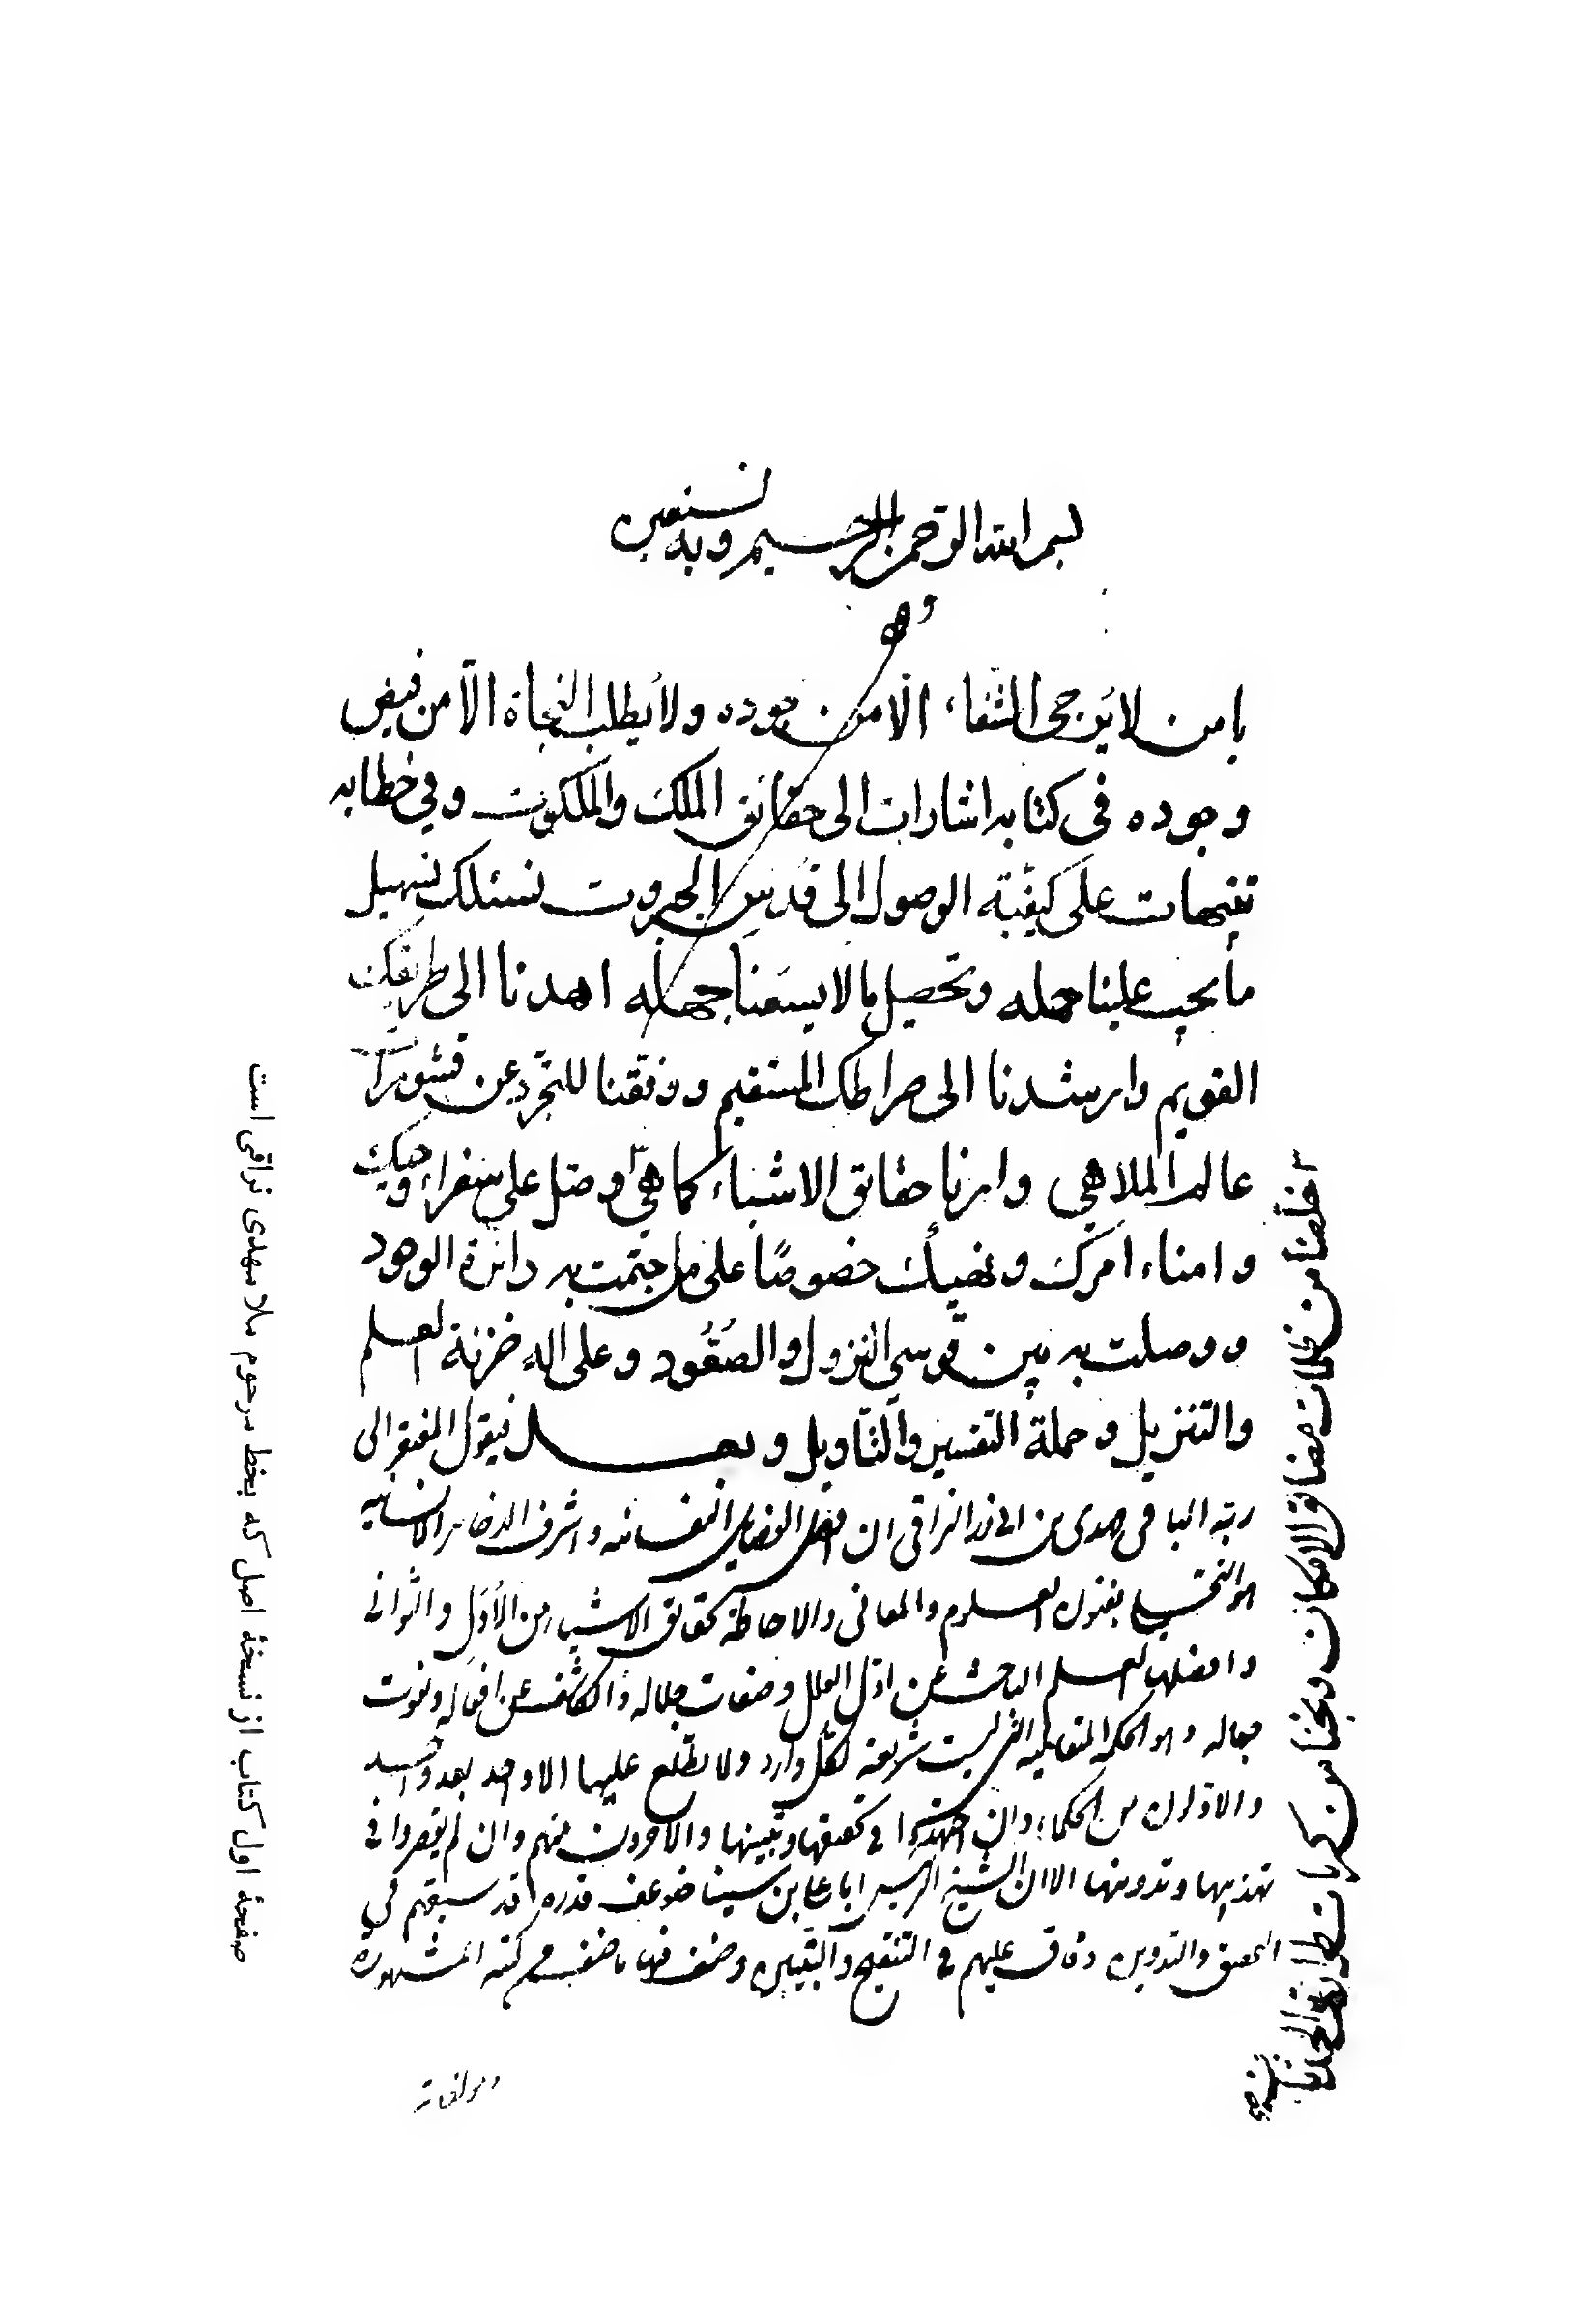 بسم الله الرحمن الرحيم وبه نستعين
يا من لا يرجى الشفاء الا من جوده ولا يطلب النجاة الا من فيض
وجوده فى كتابه اشارات الى حقائق الملك والملكوت وفي خطابه
تنبيهات على كيفية الوصول الى قدس الجبروت نسئلك تسهيل
ما يجب علينا حمله وتحصيل ما لا يسعنا جهله اهدنا الى طريقك
القويم وارشدنا الى صراطك المستقيم ووفقنا للتجرد عن قشورات
عالم الملاهي وارنا حقائق الاشياء كما هي وصل على سفراء وحيك
وامناء امرك ونهيك خصوصًا على من ختمت به دائرة الوجود
ووصلت به بين قوسي النزول والصُعُود وعلى اله خزنة العلم
والتنزيل وحملة التفسير والتأويل وبعد فيقول المفتقر الى
ربّه الباقى مهدى بن ابى ذر النراقى ان افضل الفضايل النفسانيه واشرف الذخاير الانسانيه
هو التحلى بفنون العلوم والمعانى والاحاطة بحقايق الاشياء من الأوَل والثوانى
وافضلها العلم الباحث عن اوّل العلل وصفات جلاله والكاشف عن افعاله ونعوت
جماله وهو الحكمة المتعاليه التى ليست شريعة لكل وارد ولا يطّلع عليها الا واحد بعد واحد
والاولون من الحكماء وان اجتهدوا فى تحقيقها وتبيينها والاخرون منهم وان لم يقصروا فى
تهذيبها وتدوينها الا ان الشيخ الرئيس ابا على بن سينا ضوعف قدره قد سبقهم فى
التحقيق والتدوين وفاق عليهم فى التنقيح والتبيين وصنف فيها ما صنف فى كتبه المشهورة
ومولفاته
خلّصنا من ظلمات مضائق الامكان ونجّنا من كربات
صفحهٔ اول کتاب از نسخهٔ اصل که بخط مرحوم ملا مهدی نراقی است